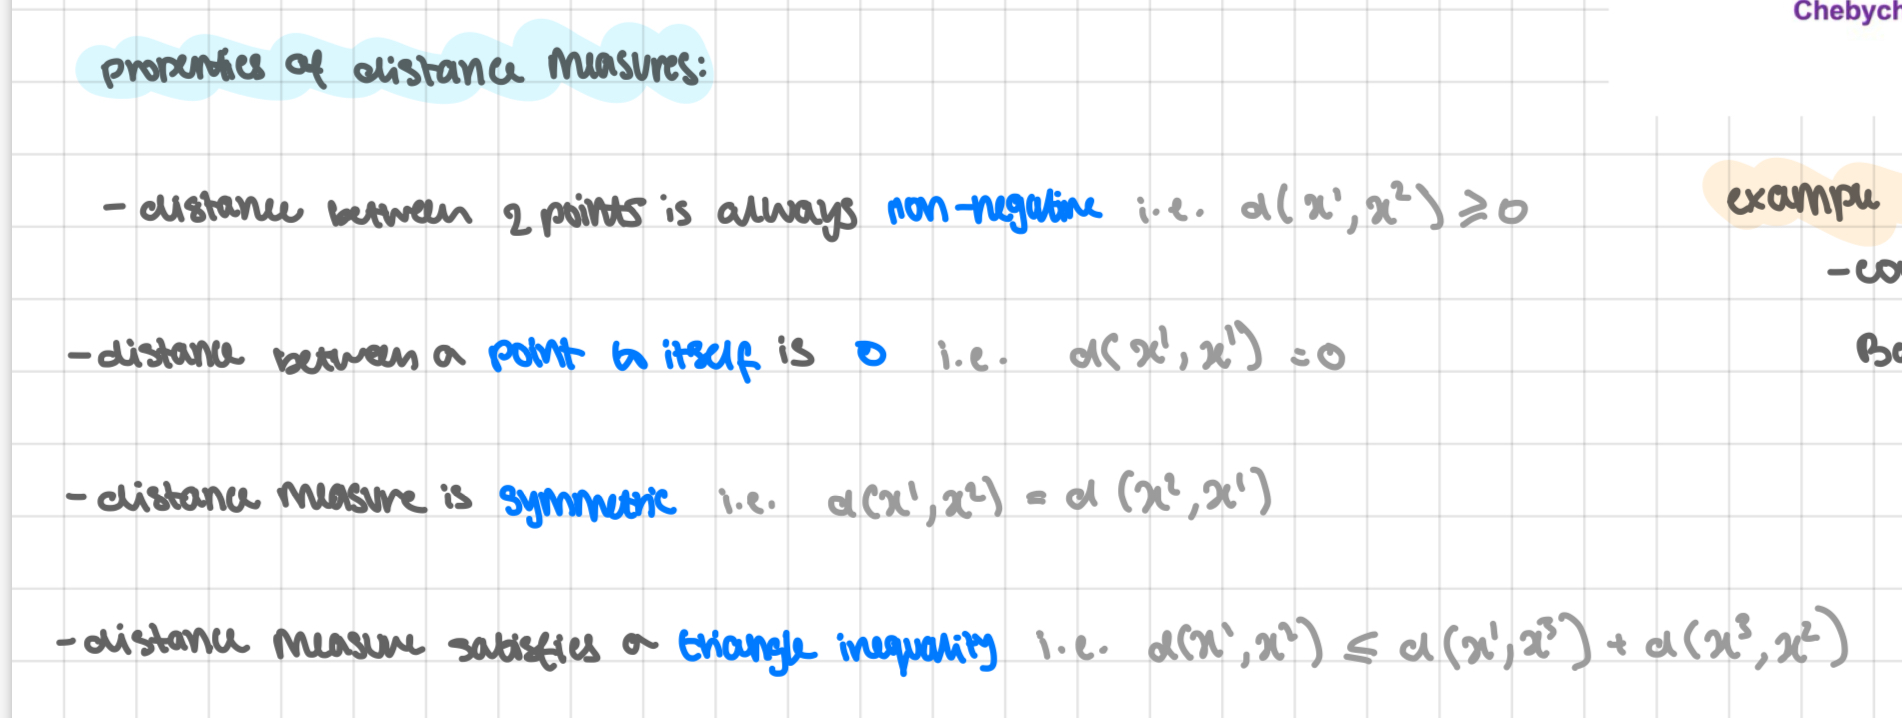 Chebych
properties of distance measures:
- distance between 2 points is always non-negative i.e. d(x¹, x²) ⩾ 0
example
- co
- distance between a point to itself is 0 i.e. d(x¹, x¹) = 0
Ba
- distance measure is symmetric i.e. d(x¹, x²) = d(x², x¹)
- distance measure satisfies a triangle inequality i.e. d(x¹, x²) ≤ d(x¹, x³) + d(x³, x²)